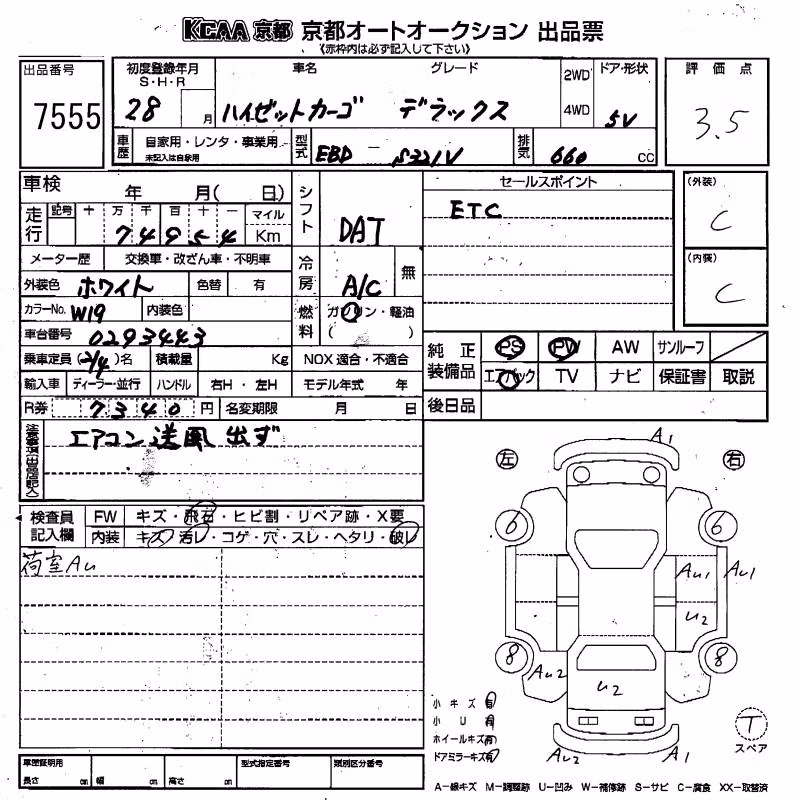 KCAA 京都 京都オートオークション 出品票
《赤枠内は必ず記入して下さい》
出品番号
7555
初度登録年月
S・H・R
28 月
車名
グレード
ハイゼットカーゴ デラックス
2WD
4WD
ドア・形状
5V
評価点
3.5
車歴
自家用・レンタ・事業用
未記入は自家用
型式
EBD - S321V
排気
660 cc
車検 年 月( 日)
走行
記号 十 万 千 百 十 一 マイル
74954 Km
シフト
DAT
セールスポイント
ETC
(外装)
C
(内装)
C
メーター歴 交換車・改ざん車・不明車
冷房
A/C
無
外装色 ホワイト 色替 有
カラーNo. W19 内装色
燃料
ガソリン・軽油
( )
車台番号 0293443
乗車定員 (2/4)名 積載量 Kg NOX 適合・不適合
輸入車 ディーラー・並行 ハンドル 右H・左H モデル年式 年
R券 7340 円 名変期限 月 日
純正装備品
PS PW AW サンルーフ
エアバック TV ナビ 保証書 取説
後日品
注意事項(出品店記入)
エアコン送風出ず
検査員記入欄
FW キズ・飛石・ヒビ割・リペア跡・X要
内装 キズ・汚レ・コゲ・穴・スレ・ヘタリ・破レ
荷室Au
左
右
A1
6
6
Au1
Au1
U2
8
8
Au2
U2
小キズ有
小U有
ホイールキズ有
ドアミラーキズ有
Au2
A1
T
スペア
車歴証明用
長さ cm 幅 cm 高さ cm
型式指定番号
類別区分番号
A-線キズ M-調整跡 U-凹み W-補修跡 S-サビ C-腐食 XX-取替済